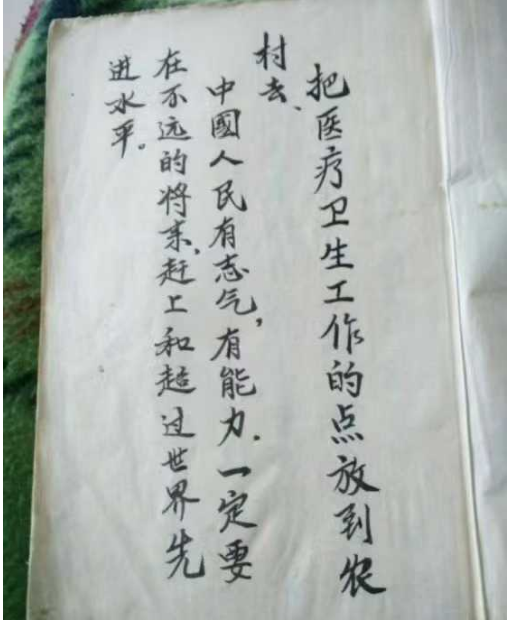 把医疗卫生工作的点放到农
村去、
中國人民有志气，有能力．一定要
在不远的将来，赶上和超过世界先
进水平。